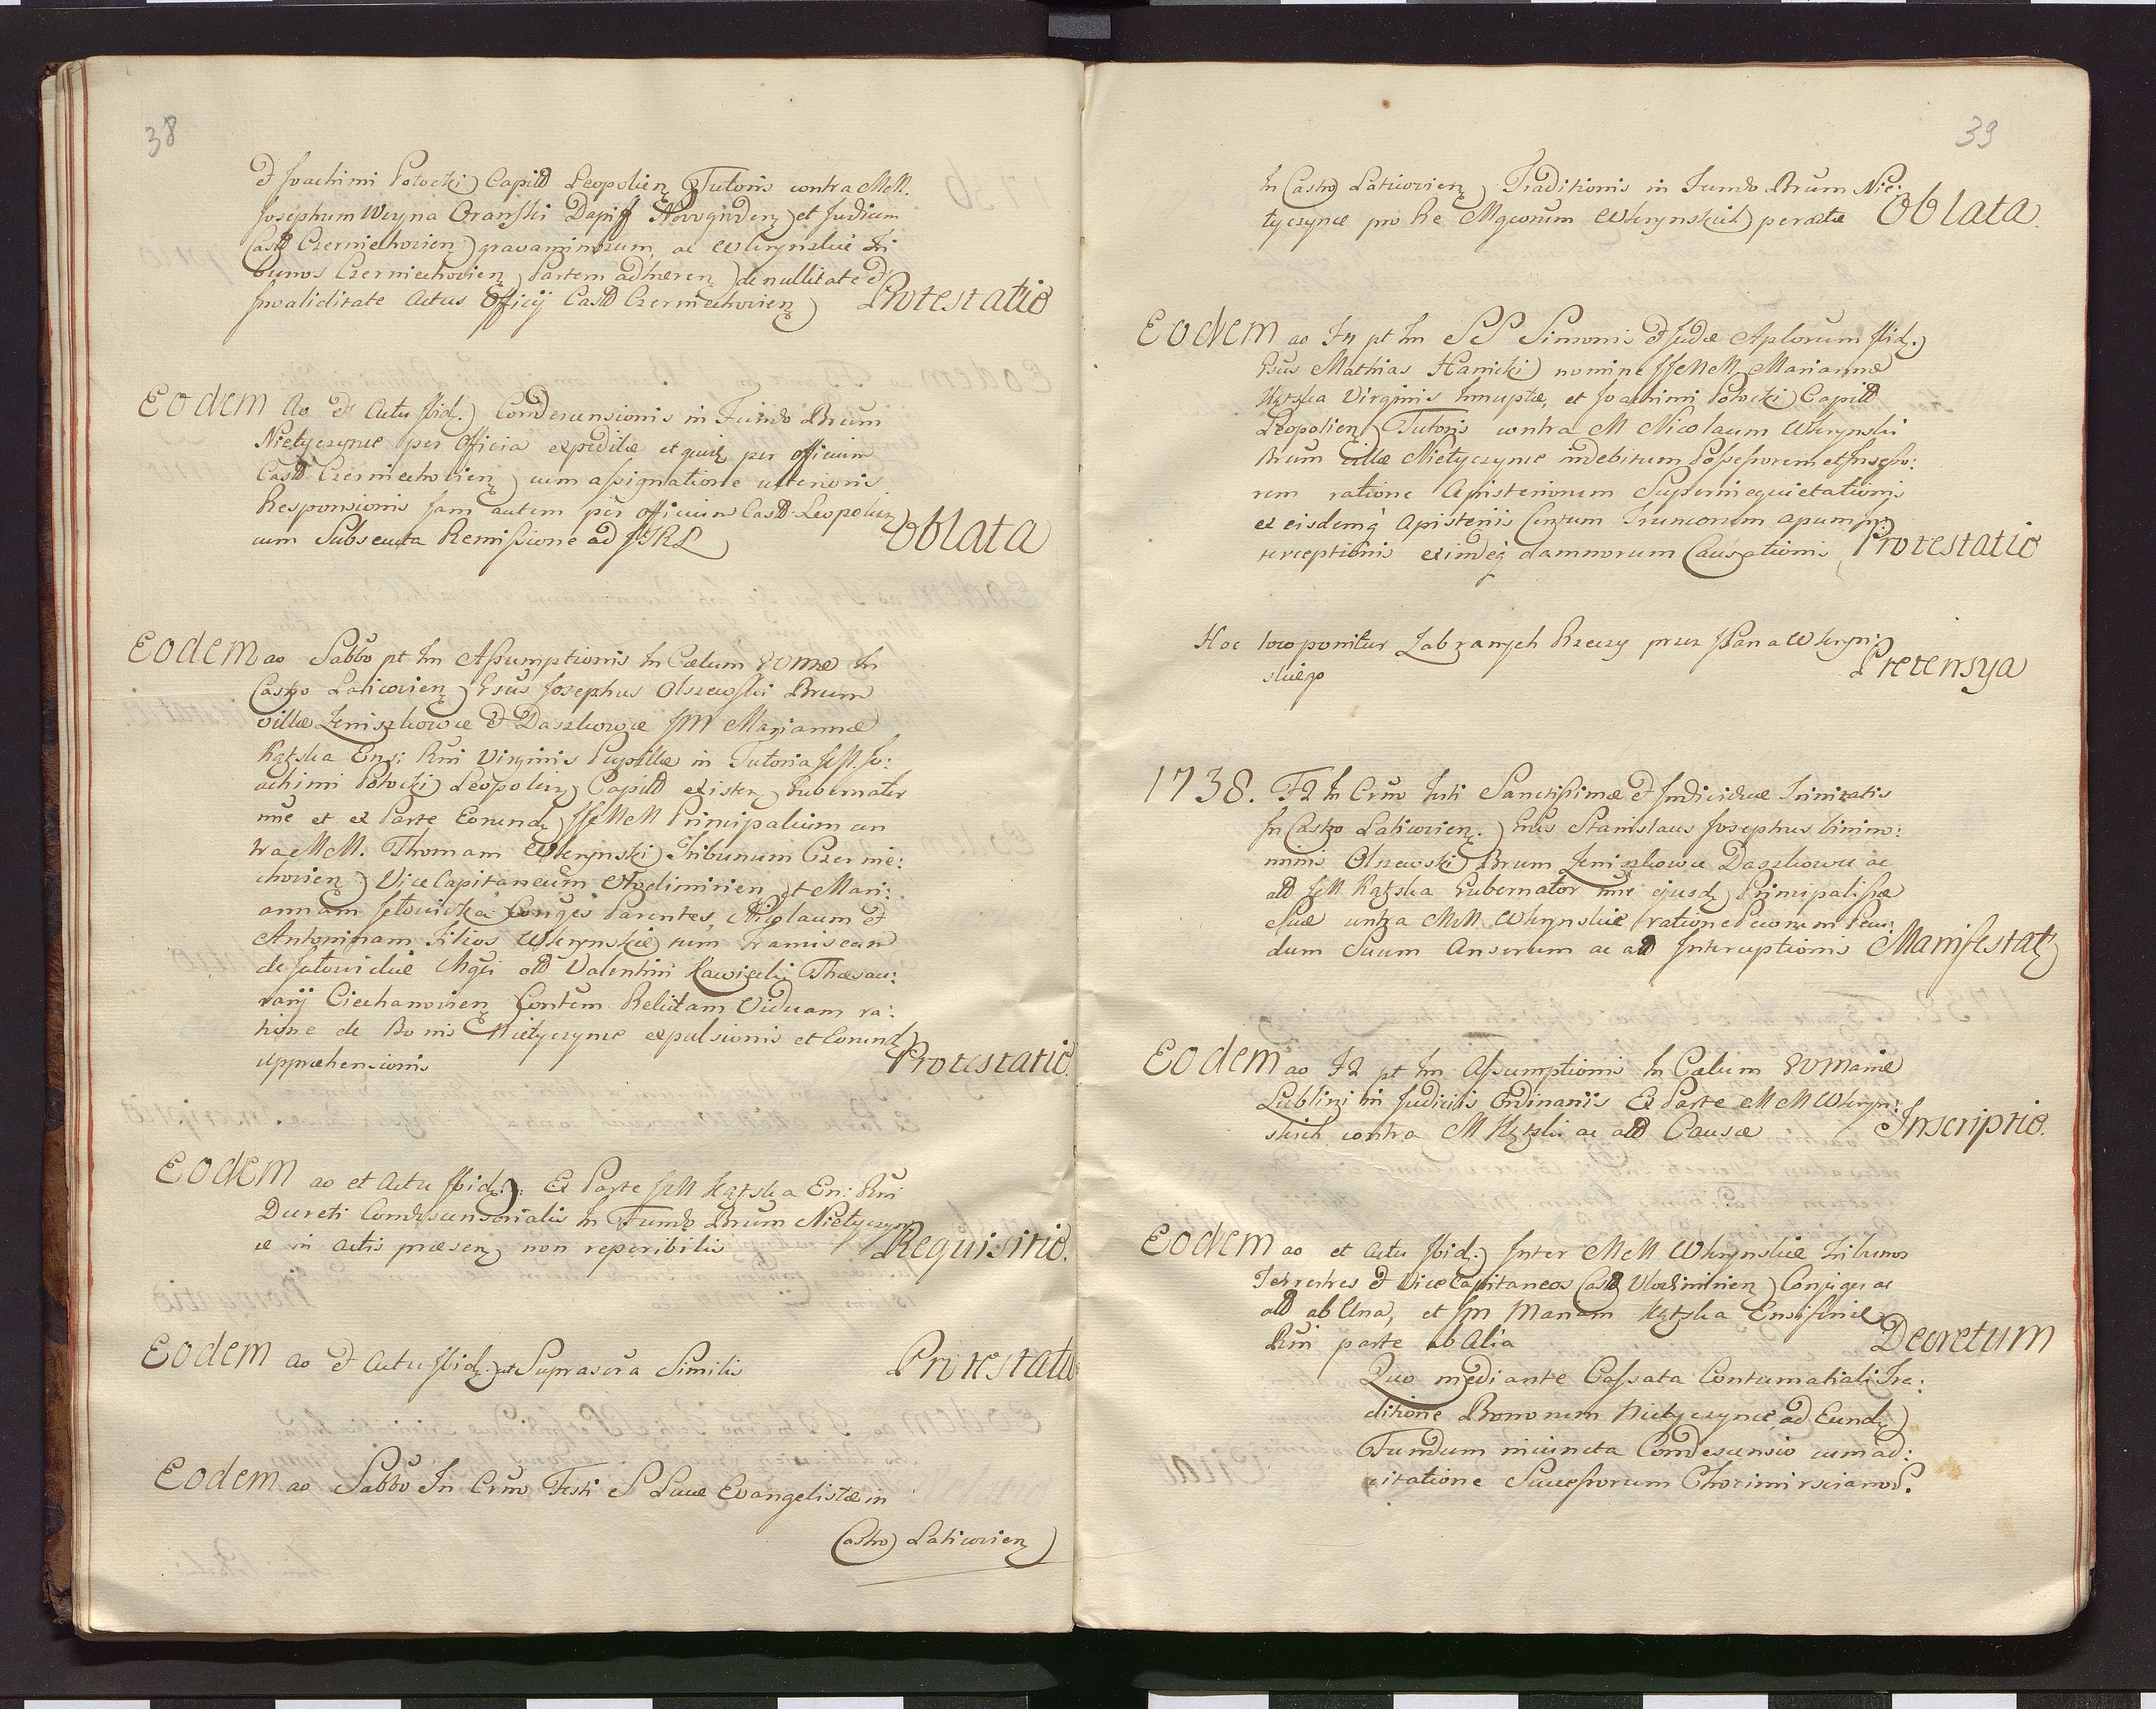 38
et Joachimi Potocki Capitt Leopolien Tutoris contra MM.
Josephum Woyna Oranski Dapif Novogrden et Judicum
Castr Czerniechovien gravaminosum, ac Wkrynskie Tri
bunos Czerniechovien Partem adhæren de nullitate et
Invaliditate Actus Officij Castr Czerniechovien Protestatio
Eodem Ao et Actu Ibid. Condescensionis in Fundo Bnrum
Nietyczynce per Officia expeditæ et quidz per officium
Castr Czerniechovien cum assignatione ulterioris
Responsionis Jam autem per officium Castr Leopolien
cum Subsecuta Remissione ad JTRL Oblata
Eodem ao Sabbo pt fm Assumptionis In Cælum Væ Mæ In
Castro Laticovien Gsus Josephus Olszewski Bnrum
villæ Zeniszkowce et Daszkowce JM Mariannæ
Kątska Ensi: Rni Virginis Pupillæ in Tutoria JM. Jo:
achimi Potocki Leopolien Capitt existen Gubernator
nne et ex Parte Eorundz JJMM Principalium con
tra MM. Thomam Wkrynski Tribunum Czernie:
chovien Vice Capitaneum Vlodimirien et Mari:
annam Jełowicka Conges Parentes, Nicolaum et
Antoninam Filios Wkrynskie tum Franciscan
de Jełowickie Mgci old Valentini Rawicki Thesau:
rarij Ciechanovien Contem Relictam Viduam ra:
tione de Bonis Nietyczynce expulsionis et Eorundz
appræhensionis Protestatio.
Eodem ao et Actu Ibidz: Ex Parte JM Kątska En: Rni
Decreti Condescensorialis In Fundo Bnrum Nietyczyn
ce in actis præsen non reperibilis Requisitio.
Eodem ao et Actu Ibidz: ut Suprascra Similis Protestatio
Eodem ao Sabbo In Crno Festi S Lucæ Evangelistæ in
Castro Laticovien
39
In Castro Laticovien Traditionis in Fundo Bnrum Nie:
tyczynce pro Re Mgcorum Wkrynskich peractæ Oblata.
Eodem ao F4 pt fm SS Simonis et Judæ Aplorum Ibid.
Gsus Mathias Hanicki nomine JJMM Mariannæ
Kątska Virginis Innuptæ, et Joachimi Potocki Capitt
Leopolien Tutoris contra M Nicolaum Wkrynski
Bnrum villæ Nietyczynce indebitum Possessorem et Inscpo:
rem ratione Apisteriorum Superinequietationis
ex eisdemq Apisteriis Centum Truncorum apum in:
terceptionis exindeq damnorum Causationis Protestatio
Hoc loco ponitur Zabranych Rzeczy przez JPana Wkryn:
skiego Pretensya
1738. F2 In Crno Festi Sanctissimæ et Individuæ Trinitatis
In Castro Laticovien. Gnus Stanislaus Josephus binino:
minis Olszewski Bnrum Zeniszkowce Daszkowce ac
alld JM Kątska Gubernator nne ejusdz Principalissæ
Suæ contra MM Wkrynskie ratione Pecorum Pecu:
dum Suum Anserum ac alld Interceptionis Manifestatz
Eodem ao F2 pt fm Assumptionis In Cælum Væ Mariæ
Lublini in Judiciis Ordinariis Ex Parte MM Wkryn:
skich contra M Kątska ac alld Causæ Inscriptio.
Eodem ao et Actu Ibid. Inter MM Wkrynskie Tribunos
Terrestres et Vice Capitaneos Castr Vlodimirien Conjuges ac
alld ab Una, et JM Mariam Kątska Ensiferic
Rni parte ab Alia Decretum
Quo mediante Cassata Contumatiali Tra:
ditione Bonorum Nietyczynce ad Eundz
Fundum injuncta Condescensio cum ad:
citatione Successorum Chocimirscianos.